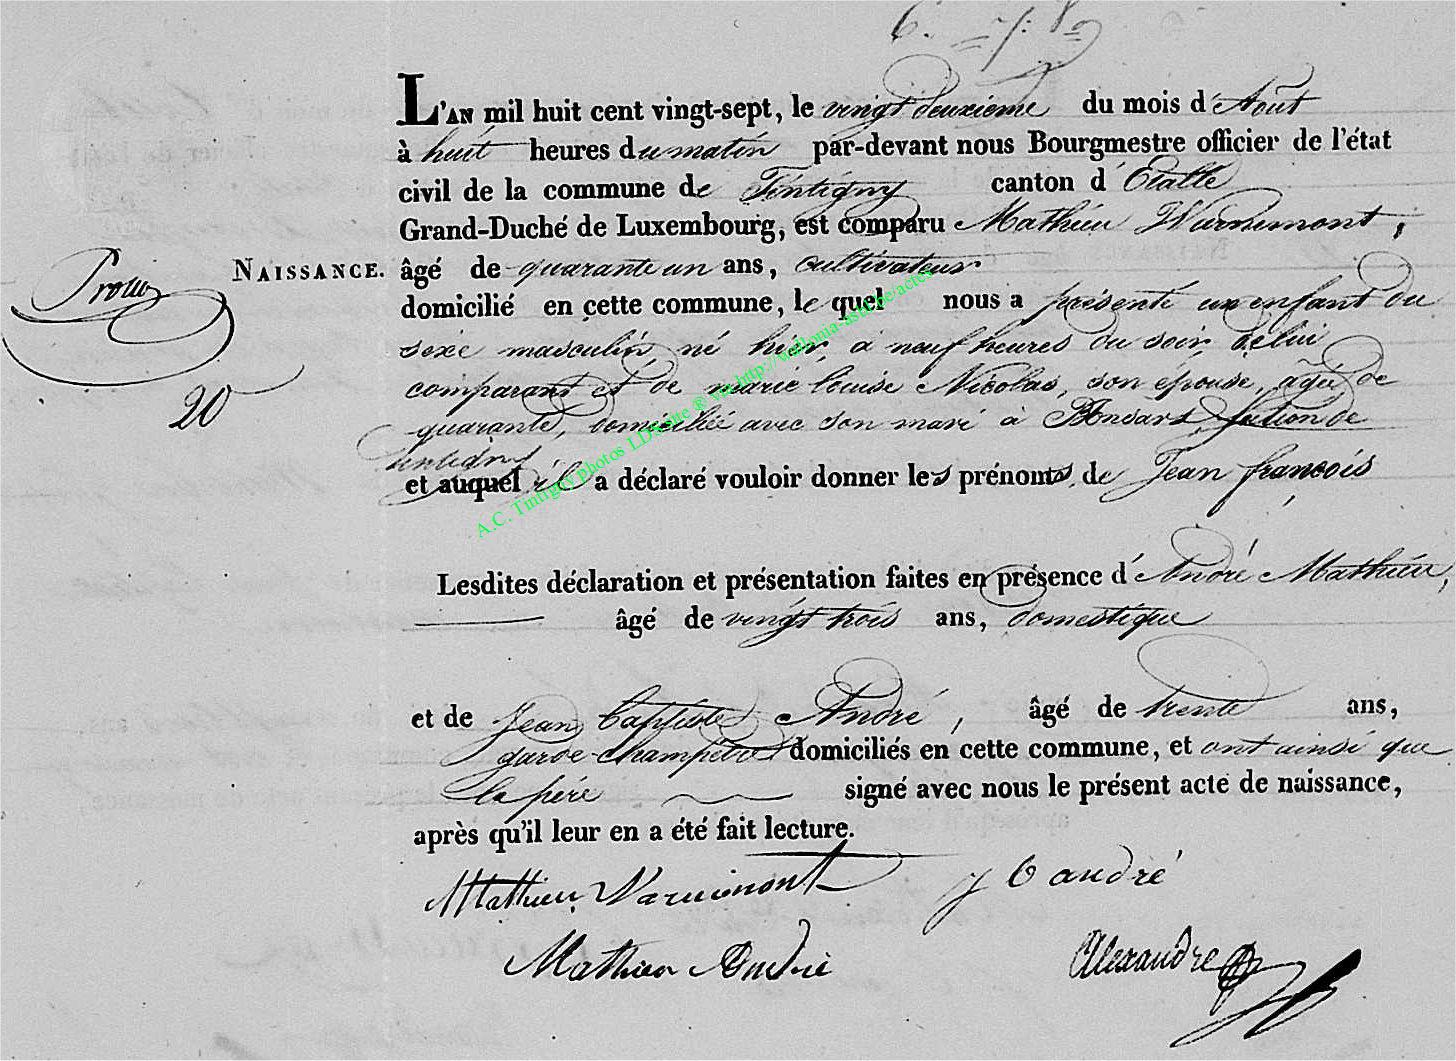 6.
L'AN mil huit cent vingt-sept, le vingt deuxieme du mois d'Aout
à huit heures du matin par-devant nous Bourgmestre officier de l'état
civil de la commune de Tintigny canton d'Etalle
Grand-Duché de Luxembourg, est comparu Mathieu Warnimont,
NAISSANCE. âgé de quarante un ans, cultivateur
domicilié en cette commune, le quel nous a présenté un enfant du
sexe masculin né hier à neuf heures du soir de lui
comparant et de marie louise Nicolas, son epouse, agée de
quarante, domiciliée avec son mari à Ansart section de
20
tintigny
et auquel il a déclaré vouloir donner les prénoms de Jean françois
Lesdites déclaration et présentation faites en présence d'André Mathieu,
âgé de vingt trois ans, domestique
et de Jean Baptiste André, âgé de trente ans,
garde-champetre domiciliés en cette commune, et ont ainsi que
le père signé avec nous le présent acte de naissance,
après qu'il leur en a été fait lecture.
Mathieu Warnimont J b andré
Mathieu André Alexandre
A.C. Tintigny photos LDX site ® via http://wallonia-asbl.be/actes